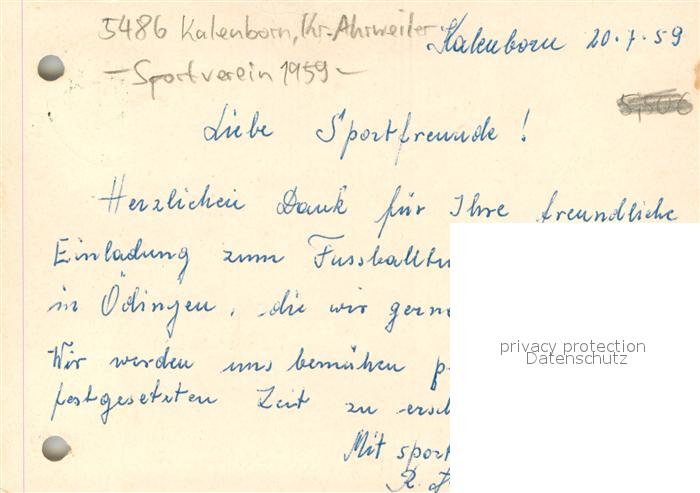 5486 Kalenborn, Kr. Ahrweiler
Kalenborn 20.7.59
– Sportverein 1959 –
5,50 €
Liebe Sportfreunde!
Herzlichen Dank für Ihre freundliche
Einladung zum Fussballtu
in Ödingen, die wir gerne
Wir werden uns bemühen p
festgesetzten Zeit zu ersch
Mit sport
R.
privacy protection
Datenschutz